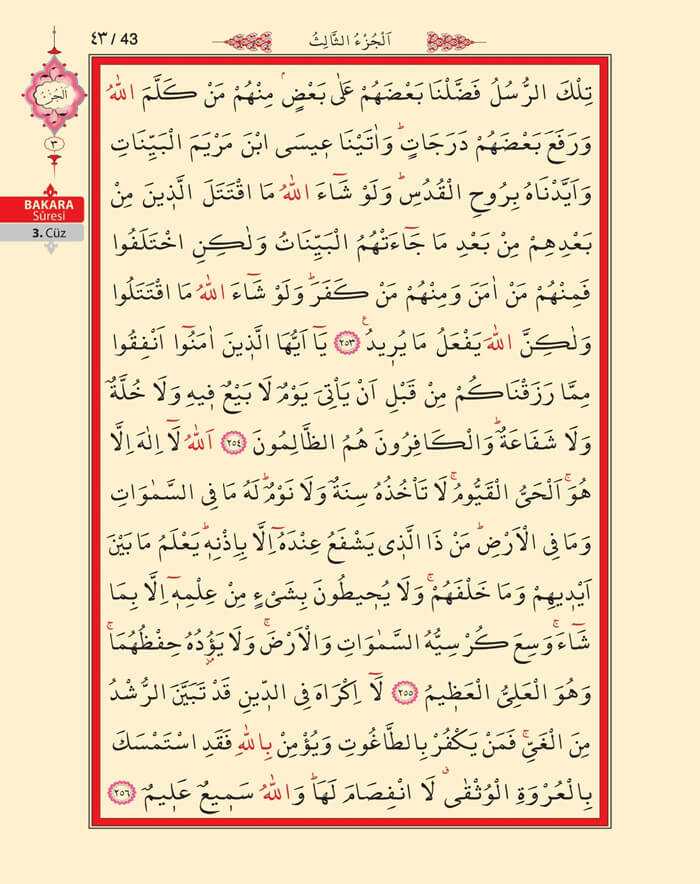 ٤٣ / 43
اَلْجُزْءُ الثَّالِثُ
اَلْجُزْءُ
٣
BAKARA
Sûresi
3. Cüz
تِلْكَ الرُّسُلُ فَضَّلْنَا بَعْضَهُمْ عَلٰى بَعْضٍۢ مِنْهُمْ مَنْ كَلَّمَ اللّٰهُ
وَرَفَعَ بَعْضَهُمْ دَرَجَاتٍۜ وَاٰتَيْنَا عٖيسَى ابْنَ مَرْيَمَ الْبَيِّنَاتِ
وَاَيَّدْنَاهُ بِرُوحِ الْقُدُسِۜ وَلَوْ شَٓاءَ اللّٰهُ مَا اقْتَتَلَ الَّذٖينَ مِنْ
بَعْدِهِمْ مِنْ بَعْدِ مَا جَٓاءَتْهُمُ الْبَيِّنَاتُ وَلٰكِنِ اخْتَلَفُوا
فَمِنْهُمْ مَنْ اٰمَنَ وَمِنْهُمْ مَنْ كَفَرَۜ وَلَوْ شَٓاءَ اللّٰهُ مَا اقْتَتَلُوا
وَلٰكِنَّ اللّٰهَ يَفْعَلُ مَا يُرٖيدُ ﴿٢٥٣﴾ يَٓا اَيُّهَا الَّذٖينَ اٰمَنُٓوا اَنْفِقُوا
مِمَّا رَزَقْنَاكُمْ مِنْ قَبْلِ اَنْ يَأْتِيَ يَوْمٌ لَا بَيْعٌ فٖيهِ وَلَا خُلَّةٌ
وَلَا شَفَاعَةٌۜ وَالْكَافِرُونَ هُمُ الظَّالِمُونَ ﴿٢٥٤﴾ اَللّٰهُ لَٓا اِلٰهَ اِلَّا
هُوَۚ اَلْحَيُّ الْقَيُّومُۚ لَا تَأْخُذُهُ سِنَةٌ وَلَا نَوْمٌۜ لَهُ مَا فِي السَّمٰوَاتِ
وَمَا فِي الْاَرْضِۜ مَنْ ذَا الَّذٖي يَشْفَعُ عِنْدَهُٓ اِلَّا بِاِذْنِهٖۜ يَعْلَمُ مَا بَيْنَ
اَيْدٖيهِمْ وَمَا خَلْفَهُمْۚ وَلَا يُحٖيطُونَ بِشَيْءٍ مِنْ عِلْمِهٖٓ اِلَّا بِمَا
شَٓاءَۚ وَسِعَ كُرْسِيُّهُ السَّمٰوَاتِ وَالْاَرْضَۚ وَلَا يَؤُدُهُ حِفْظُهُمَاۚ
وَهُوَ الْعَلِيُّ الْعَظٖيمُ ﴿٢٥٥﴾ لَٓا اِكْرَاهَ فِي الدّٖينِ قَدْ تَبَيَّنَ الرُّشْدُ
مِنَ الْغَيِّۚ فَمَنْ يَكْفُرْ بِالطَّاغُوتِ وَيُؤْمِنْ بِاللّٰهِ فَقَدِ اسْتَمْسَكَ
بِالْعُرْوَةِ الْوُثْقٰىۗ لَا انْفِصَامَ لَهَاۜ وَاللّٰهُ سَمٖيعٌ عَلٖيمٌ ﴿٢٥٦﴾